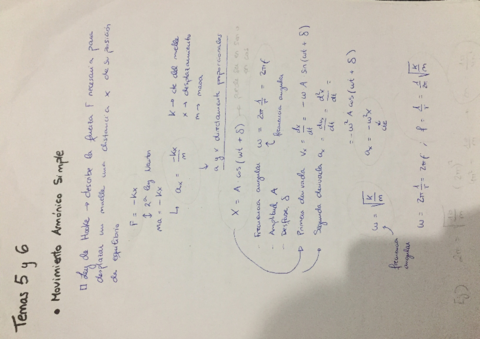 Temas 5 y 6
• Movimiento Armónico Simple
Ley de Hooke → describe la fuerza F necesaria para
desplazar un muelle una distancia x de su posición
de equilibrio
F = -kx
↕ 2ª ley Newton
ma = -kx
↳ aₓ = -kx/m
K → cte del muelle
x → desplazamiento
m → masa
a y x directamente proporcionales
X = A cos (ωt + δ)
- Frecuencia angular ω = 2π 1/T = 2πf
- Amplitud A
frecuencia angular
- Desfase δ
→ Primera derivada vₓ = dx/dt = -ωA sin(ωt + δ)
→ Segunda derivada aₓ = dvₓ/dt = d²x/dt² =
= -ω²A cos(ωt + δ)
aₓ = -ω²x
ω = √K/m
frecuencia
angular
ω = 2π 1/T = 2πf ; f = 1/T = 1/2π √K/m